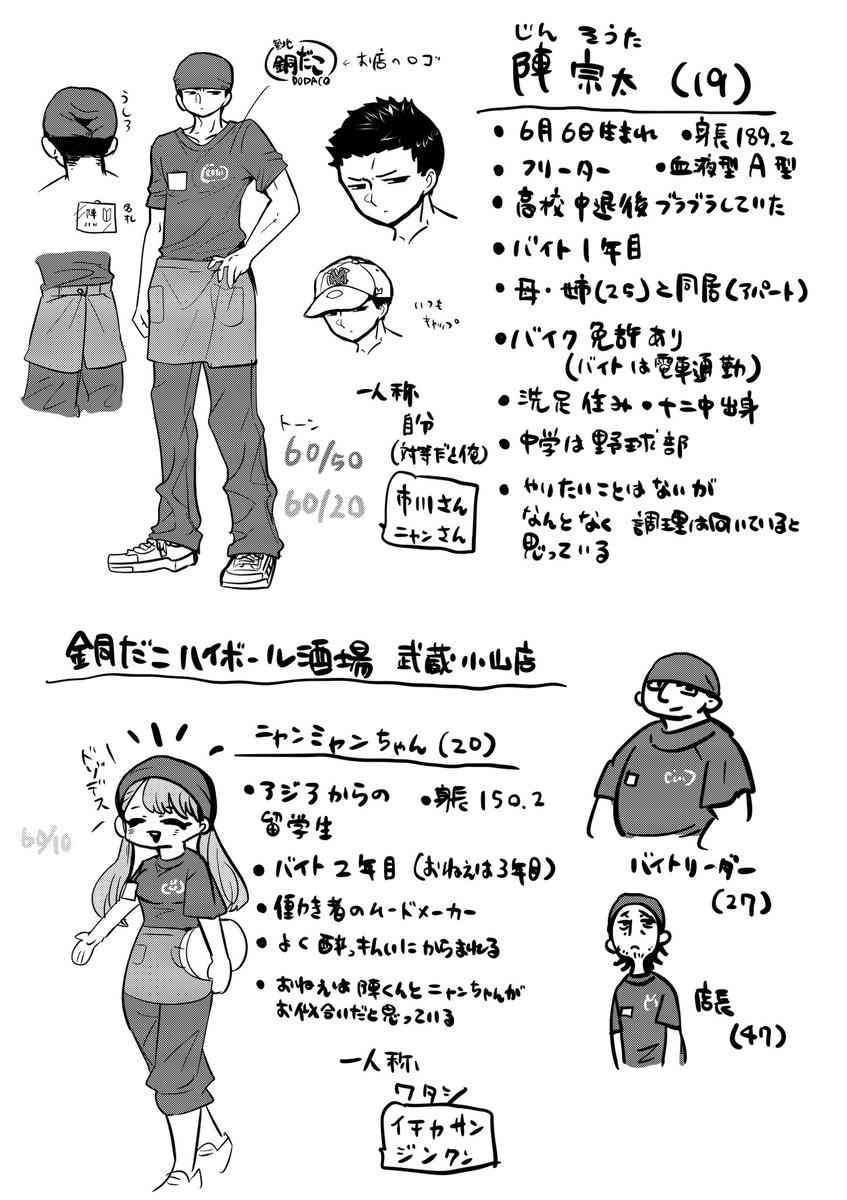 じん そうた
陣 宗太 (19)
銅だこ
DODACO
←お店のロゴ
うしろ
名札
陣
いつも
キャップ
• 6月6日生まれ •身長 189.2
• フリーター •血液型 A型
• 高校中退後ブラブラしていた
• バイト1年目
• 母・姉(25)と同居(アパート)
• バイク免許あり
(バイトは電車通勤)
• 洗足住み • 十二中出身
• 中学は野球部
• やりたいことはないが
なんとなく 調理は向いていると
思っている
一人称
自分
(対等だと俺)
市川さん
ニャンさん
トーン
60/50
60/20
銅だこハイボール酒場 武蔵小山店
ニャンミャンちゃん (20)
ドゾー
デス
60/10
• アジアからの •身長 150.2
留学生
• バイト2年目 (おねえは3年目)
• 働き者のムードメーカー
• よく酔っぱらいにからまれる
• おねえは陣くんとニャンちゃんが
お似合いだと思っている
一人称、
ワタシ
イチカサン
ジンクン
バイトリーダー
(27)
店長
(47)